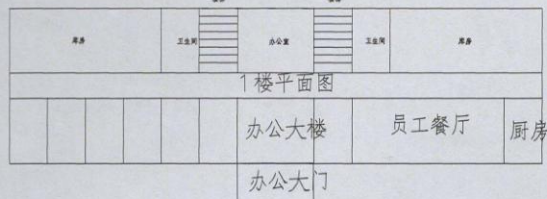 库房 卫生间 办公室 卫生间 库房
1楼平面图
办公大楼 员工餐厅 厨房
办公大门